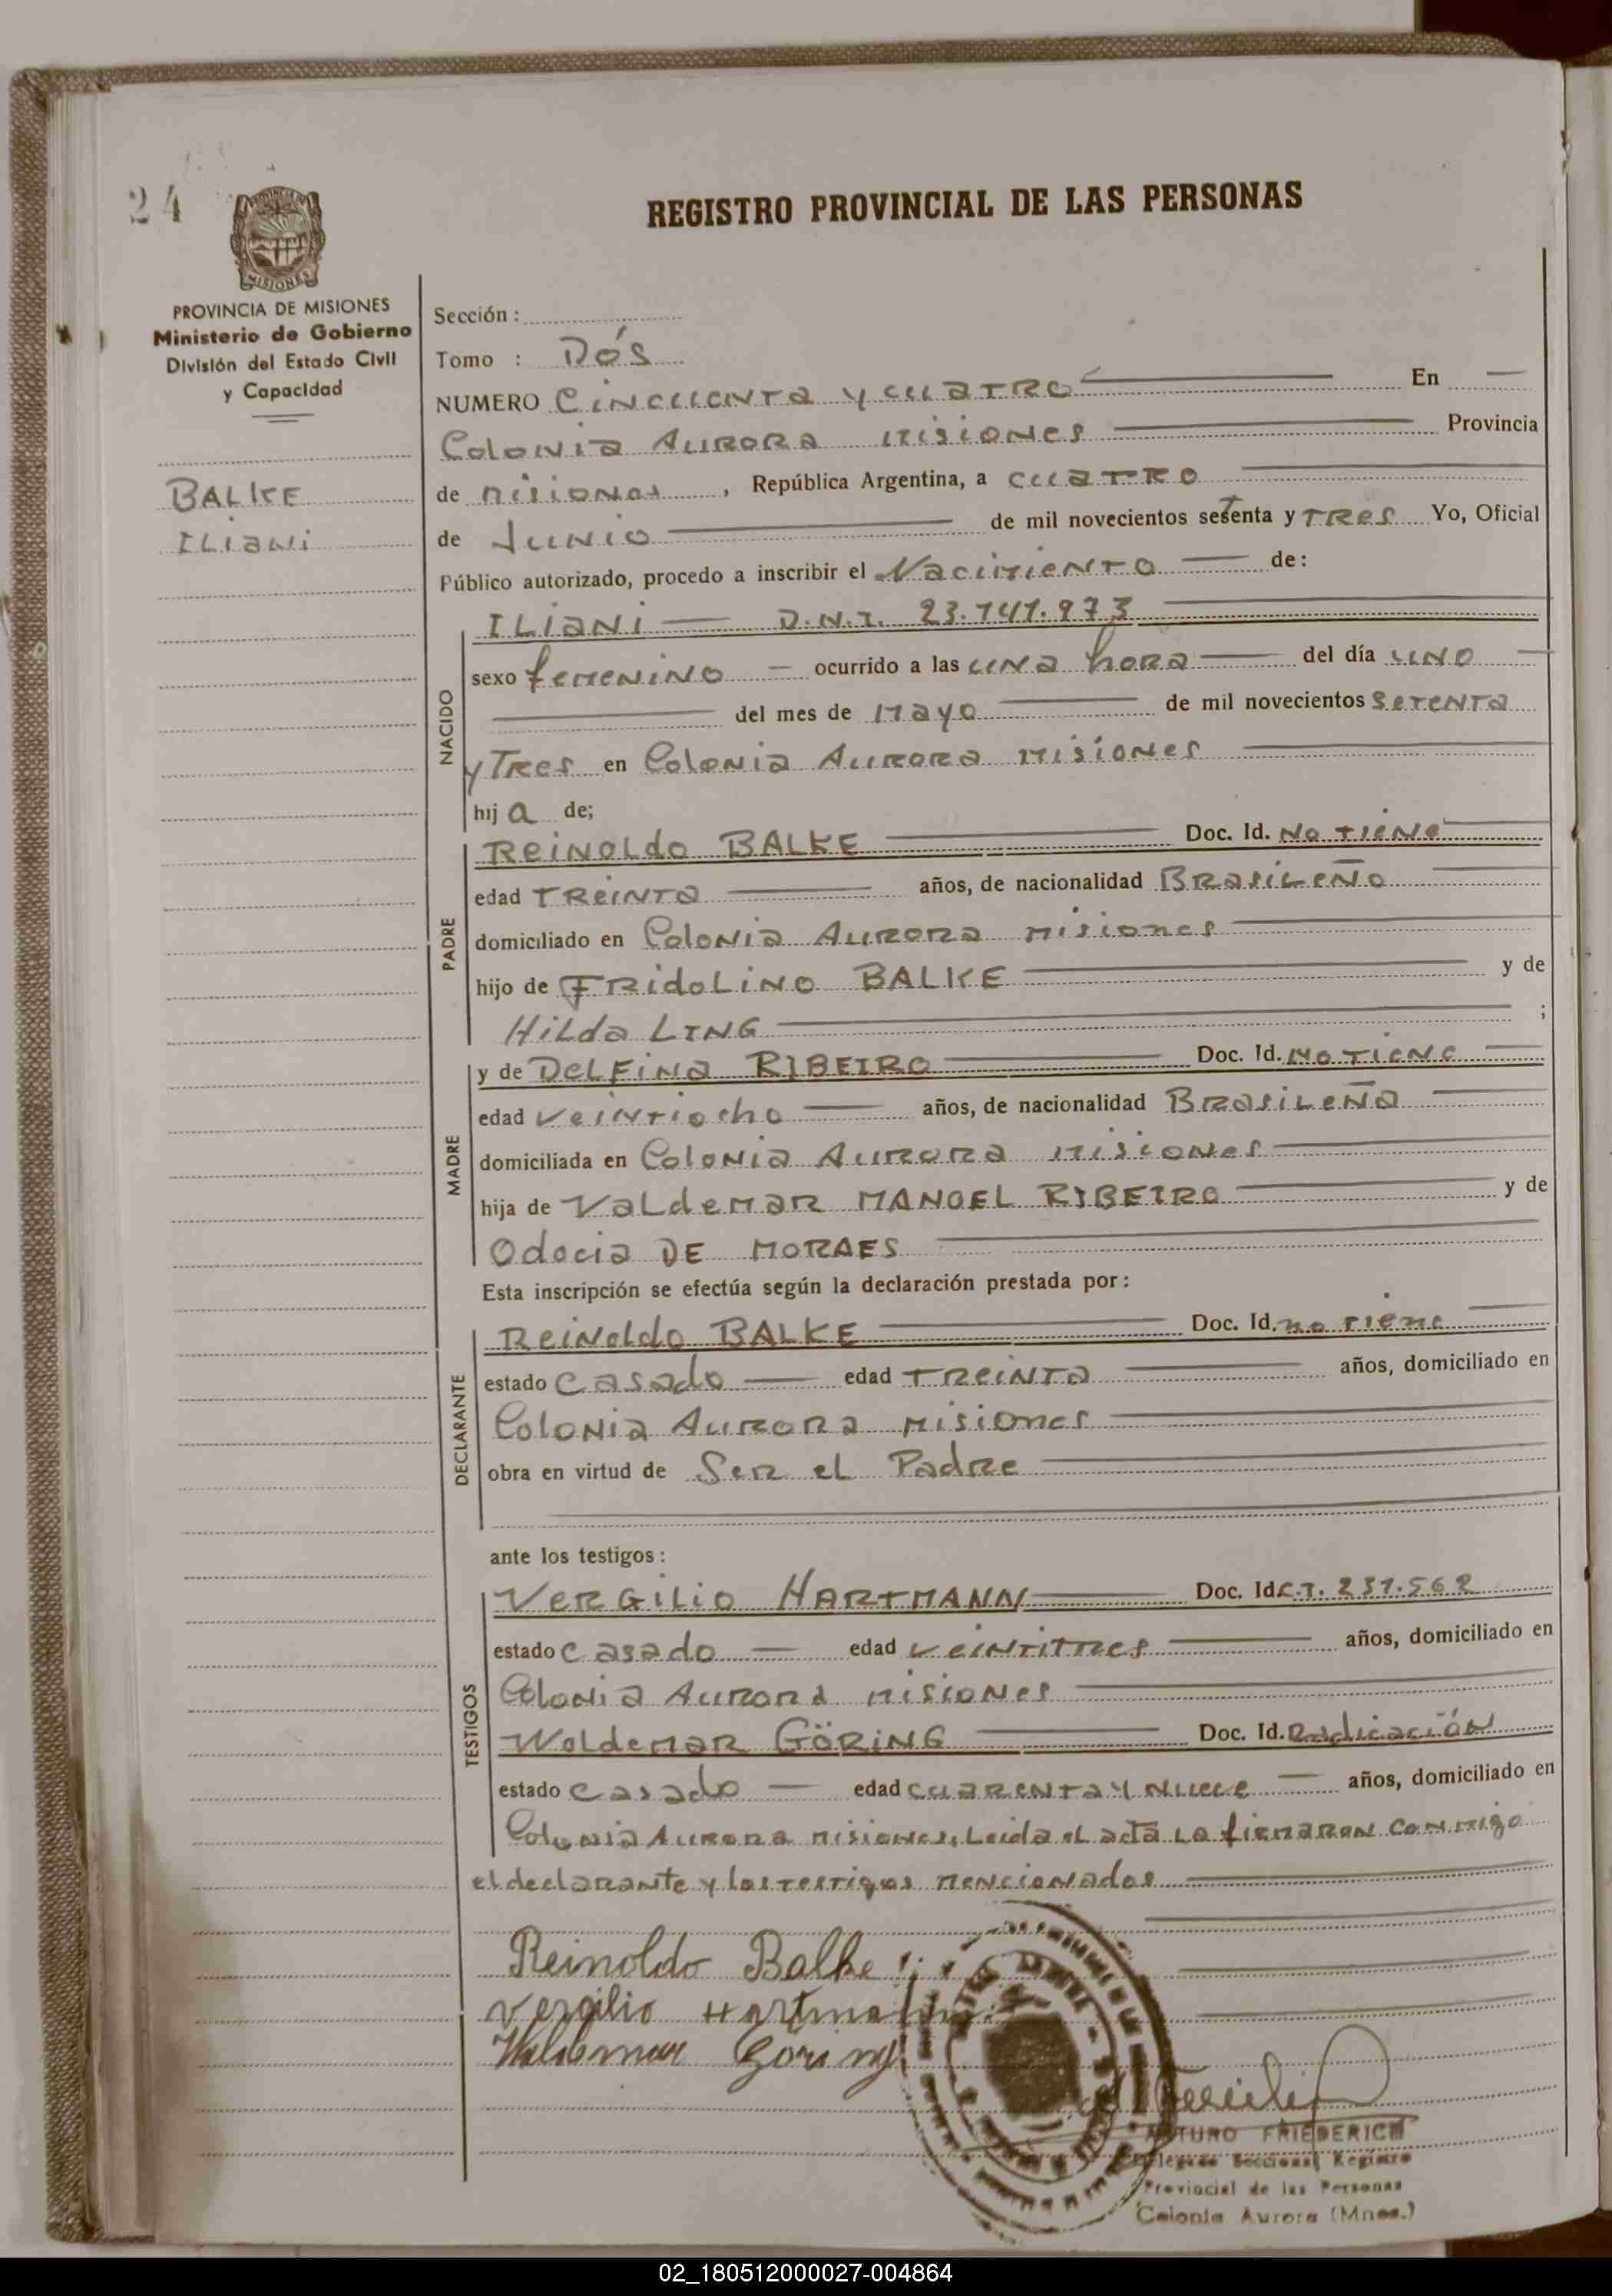 24
PROVINCIA
MISIONES
REGISTRO PROVINCIAL DE LAS PERSONAS
PROVINCIA DE MISIONES
Ministerio de Gobierno
División del Estado Civil
y Capacidad
BALKE
ILiani
Sección :
Tomo : Dós
NUMERO Cincuenta y cuatro En
Colonia Aurora Misiones Provincia
de Misiones , República Argentina, a cuatro
de Junio de mil novecientos setenta y tres Yo, Oficial
Público autorizado, procedo a inscribir el Nacimiento de:
NACIDO
ILiani D.N.I. 23.141.973
sexo femenino ocurrido a las una hora del día uno
del mes de Mayo de mil novecientos setenta
y Tres en Colonia Aurora Misiones
hij a de;
PADRE
Reinoldo BALKE Doc. Id. No tiene
edad Treinta años, de nacionalidad Brasileño
domiciliado en Colonia Aurora Misiones
hijo de Fridolino BALKE y de
Hilda LING ;
MADRE
y de Delfina RIBEIRO Doc. Id. No tiene
edad veintiocho años, de nacionalidad Brasileña
domiciliada en Colonia Aurora Misiones
hija de Valdemar MANOEL RIBEIRO y de
Odocia DE MORAES
Esta inscripción se efectúa según la declaración prestada por :
DECLARANTE
Reinoldo BALKE Doc. Id. no tiene
estado Casado edad Treinta años, domiciliado en
Colonia Aurora Misiones
obra en virtud de Ser el Padre
ante los testigos :
TESTIGOS
Vergilio HARTMANN Doc. Id C.I. 231.562
estado casado edad veintitres años, domiciliado en
Colonia Aurora Misiones
Woldemar GÖRING Doc. Id. Radicación
estado casado edad cuarenta y nueve años, domiciliado en
Colonia Aurora Misiones, Leida el acta La firmaron conmigo
el declarante y los testigos mencionados
Reinoldo Balke
Vergilio Hartmann
Woldemar Göring
ARTURO FRIEDERICH
Delegado Seccional Registro
Provincial de las Personas
Colonia Aurora (Mnes.)
02_180512000027-004864